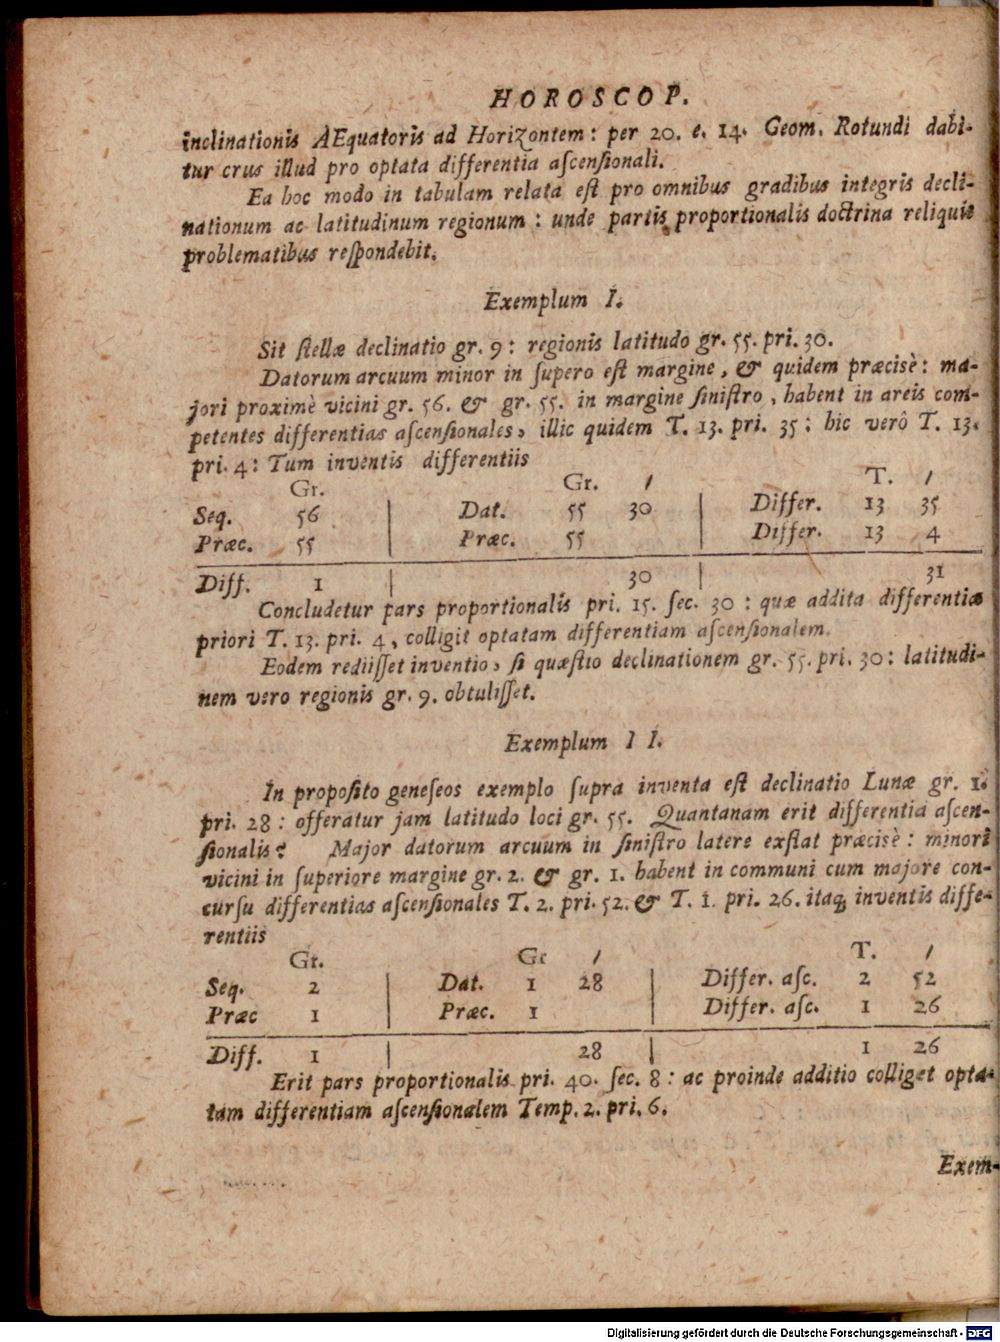 HOROSCOP.
inclinationis AEquatoris ad Horizontem: per 20. e. 14. Geom. Rotundi dabi-
tur crus illud pro optata differentia ascensionali.
Ea hoc modo in tabulam relata est pro omnibus gradibus integris decli-
nationum ac latitudinum regionum: unde partis proportionalis doctrina reliquis
problematibus respondebit.
Exemplum I.
Sit stellæ declinatio gr. 9: regionis latitudo gr. 55. pri. 30.
Datorum arcuum minor in supero est margine, & quidem præcisè: ma-
jori proximè vicini gr. 56. & gr. 55. in margine sinistro, habent in areis com-
petentes differentias ascensionales, illic quidem T. 13. pri. 35: hic verò T. 13.
pri. 4: Tum inventis differentiis
Gr. Gr. / T. /
Seq. 56 | Dat. 55 30 | Differ. 13 35
Præc. 55 | Præc. 55 | Differ. 13 4
Diff. 1 | 30 | 31
Concludetur pars proportionalis pri. 15. sec. 30: quæ addita differentiæ
priori T. 13. pri. 4, colligit optatam differentiam ascensionalem.
Eodem rediisset inventio, si quæstio declinationem gr. 55. pri. 30: latitudi-
nem vero regionis gr. 9. obtulisset.
Exemplum I I.
In proposito geneseos exemplo supra inventa est declinatio Lunæ gr. 1.
pri. 28: offeratur jam latitudo loci gr. 55. Quantanam erit differentia ascen-
sionalis? Major datorum arcuum in sinistro latere exstat præcisè: minori
vicini in superiore margine gr. 2. & gr. 1. habent in communi cum majore con-
cursu differentias ascensionales T. 2. pri. 52. & T. 1. pri. 26. itaq; inventis diffe-
rentiis
Gr. Gr / T. /
Seq. 2 | Dat. 1 28 | Differ. asc. 2 52
Præc 1 | Præc. 1 | Differ. asc. 1 26
Diff. 1 | 28 | 1 26
Erit pars proportionalis pri. 40. sec. 8: ac proinde additio colliget opta-
tam differentiam ascensionalem Temp. 2. pri. 6.
Exem-
Digitalisierung gefördert durch die Deutsche Forschungsgemeinschaft - DFG